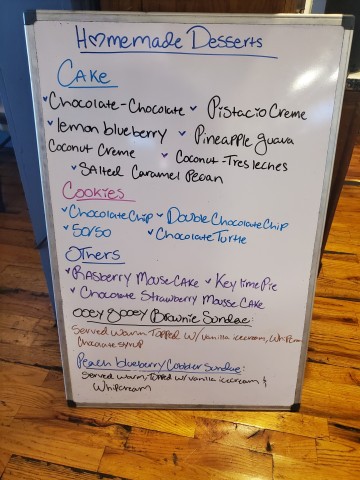 Homemade Desserts
Cake
Chocolate-Chocolate ✓ Pistacio Creme
✓ lemon blueberry ✓ Pineapple guava
Coconut Creme ✓ Coconut-Tres leches
✓ Salted Caramel Pecan
Cookies
✓ Chocolate Chip ✓ Double Chocolate Chip
✓ 50/50 ✓ Chocolate Turtle
Others
✓ Rasberry Mousse Cake ✓ Key lime Pie
✓ Chocolate Strawberry Mousse Cake
ooey gooey Brownie Sundae:
Served warm, Topped w/ vanilla icecream, Whipcream
Chocolate syrup
Peach blueberry Cobbler Sundae:
Served warm, Topped w/ vanilla icecream &
Whipcream